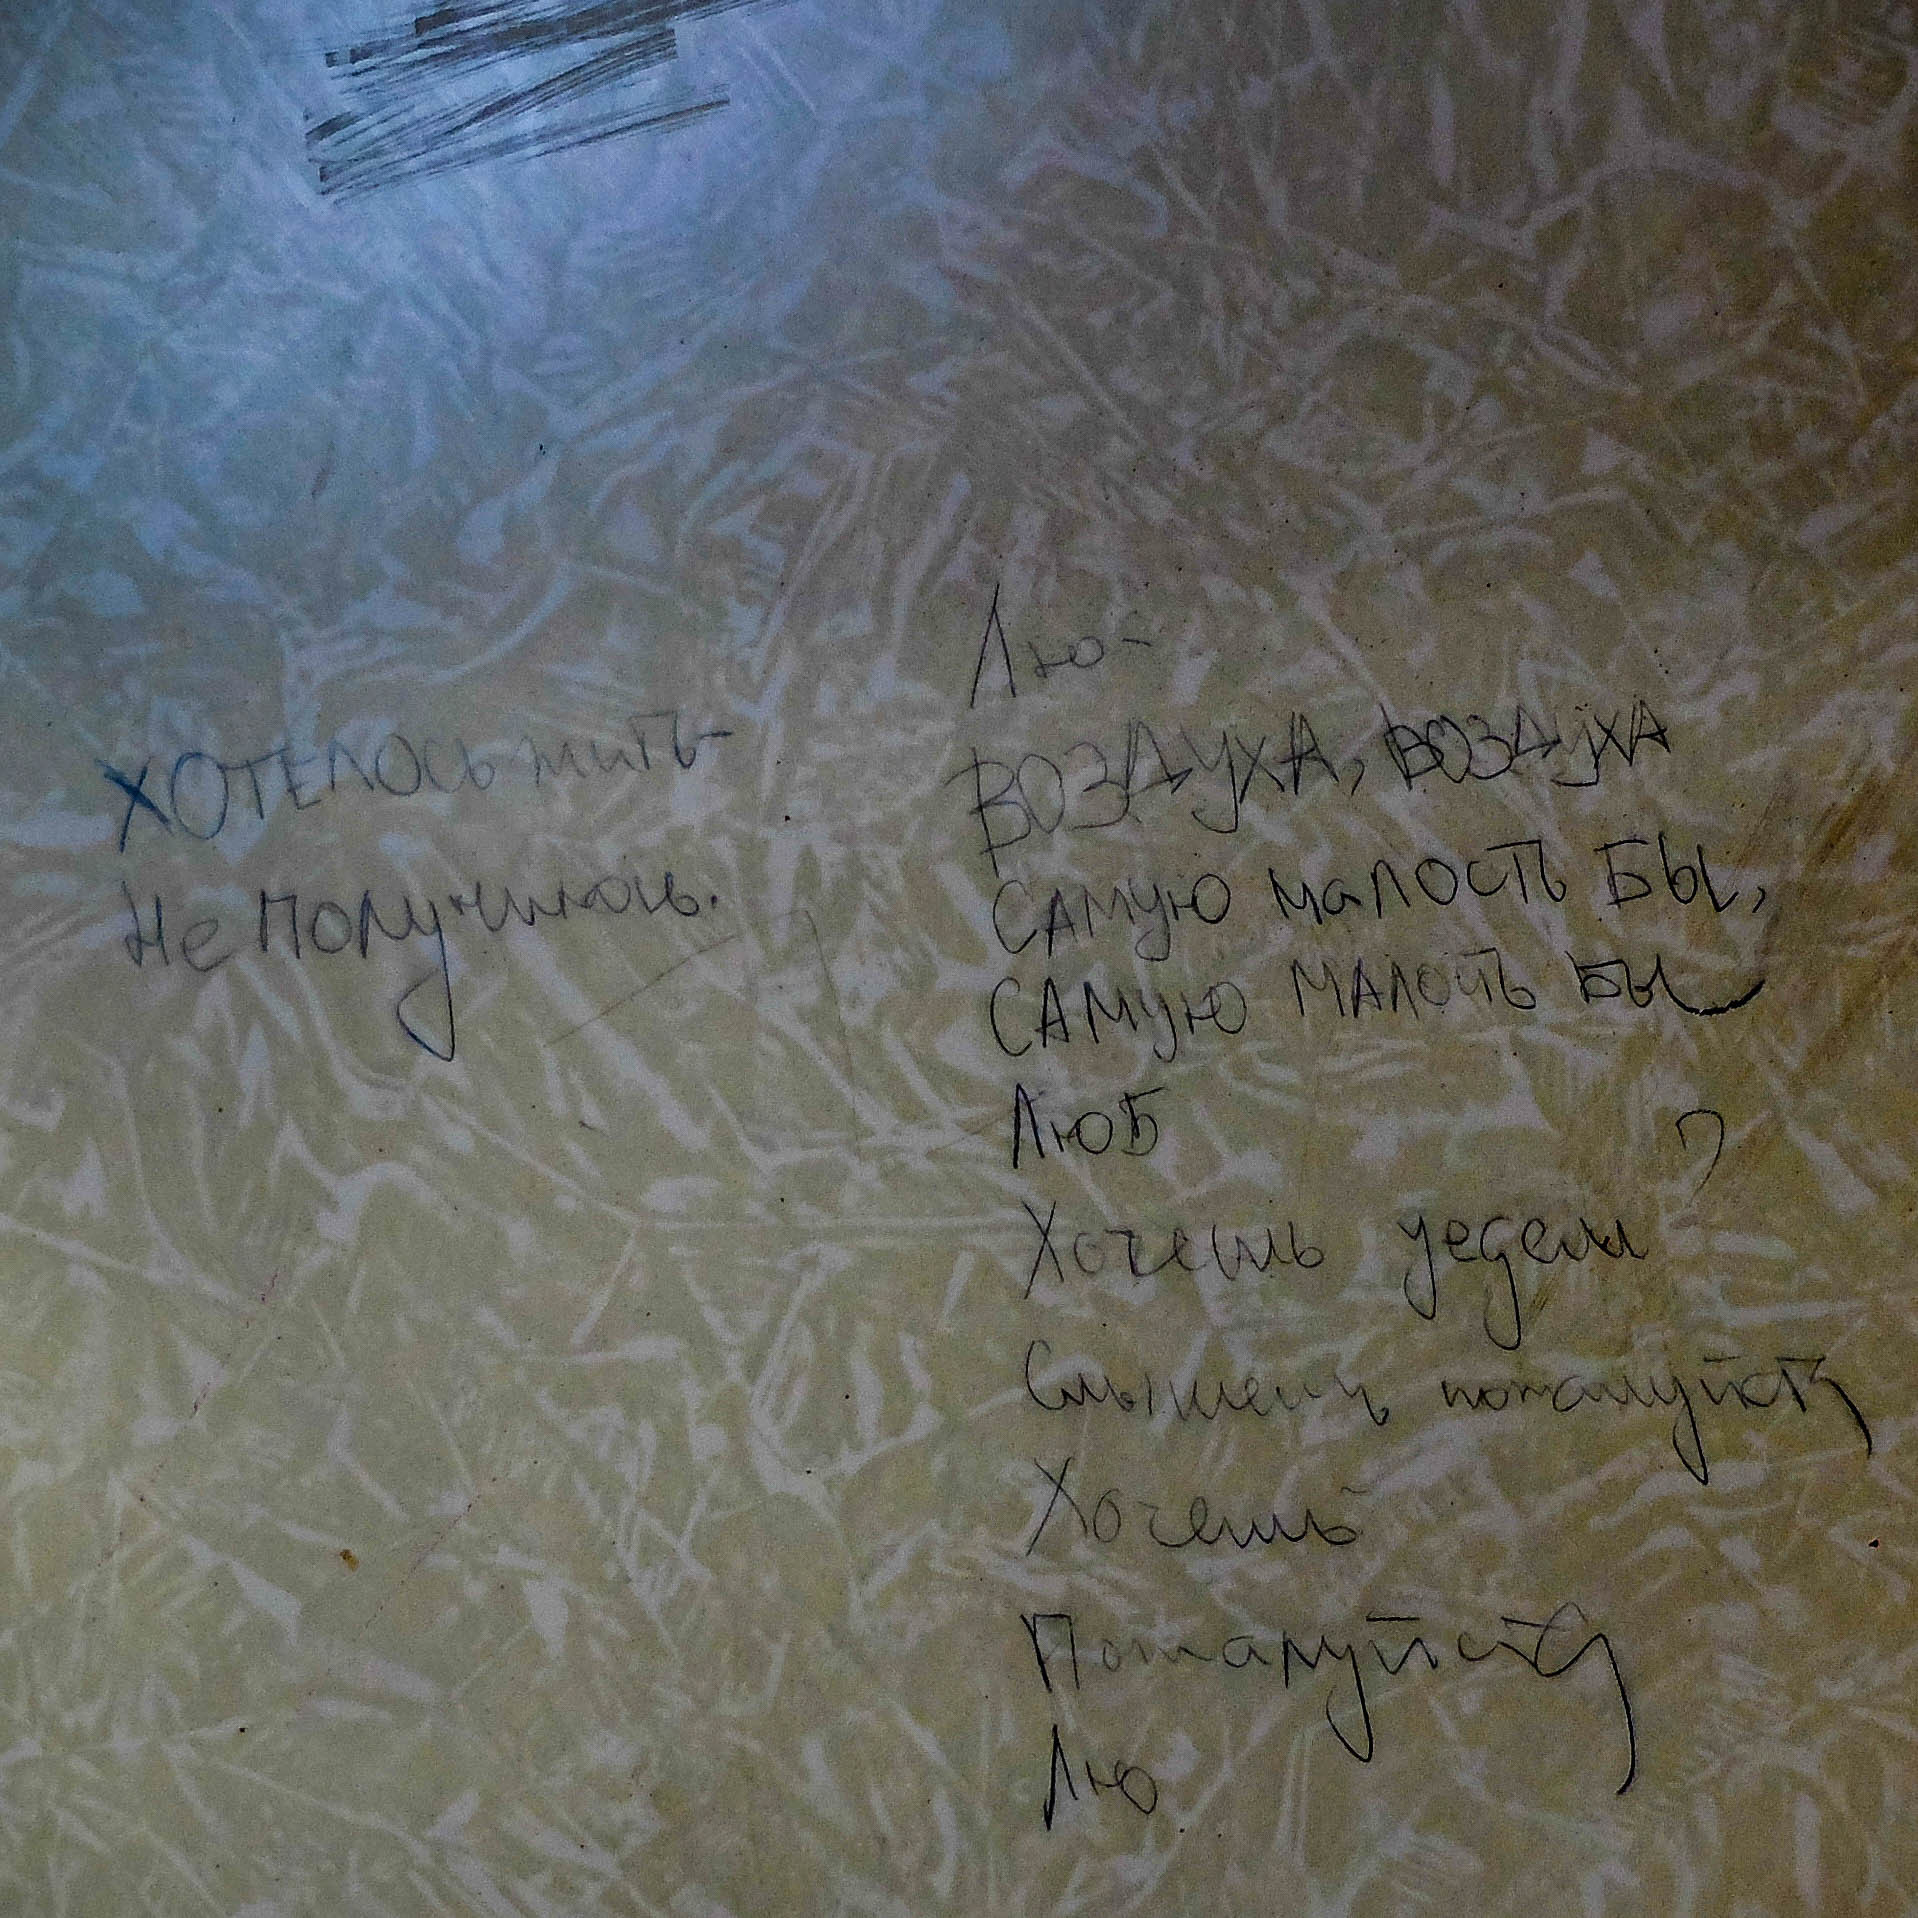 ХОТЕЛОСЬ жить-
Не получилось.
Лю-
ВОЗДУХА, ВОЗДУХА
САМУЮ МАЛОСТЬ БЫ,
САМУЮ МАЛОСТЬ БЫ
ЛЮБ
Хочешь уедем?
Слышишь пожалуйста
Хочешь
Пожалуйста
Лю